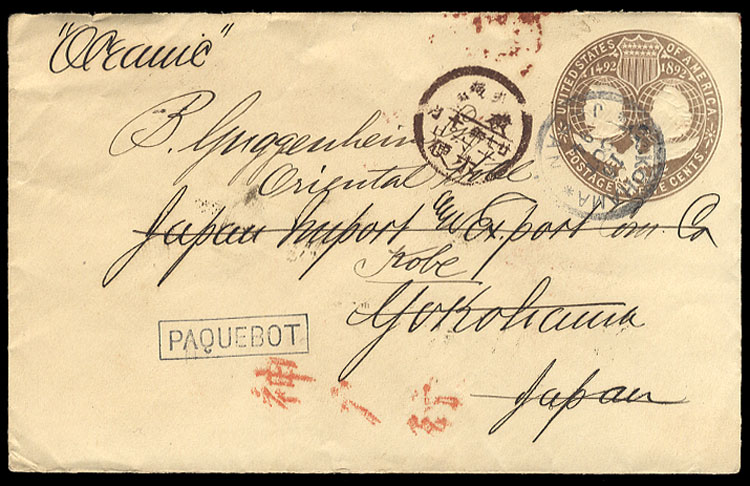 "Oceanic"
UNITED STATES OF AMERICA
1492 1892
POSTAGE FIVE CENTS.
YOKOHAMA
B. Guggenheim
Oriental Hotel
Japan Import and Export Com. Co
Kobe
Yokohama
Japan
PAQUEBOT
神戸行